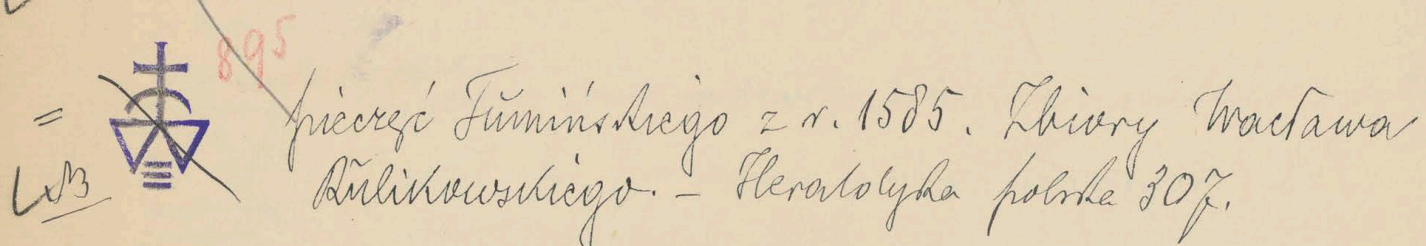 895
= pieczęć Tumińskiego z r. 1585. Zbiory Wacława
NB Rulikowskiego. – Heraldyka polska 307.